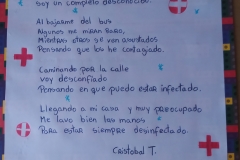 Soy un completo desconocido.
Al bajarme del bus
Algunos me miran raro,
Mientras otros se van asustados
Pensando que los he contagiado.
Caminando por la calle
voy desconfiado
Pensando en que puedo estar infectado.
Llegando a mi casa y muy preocupado
Me lavo bien las manos
Para estar siempre desinfectado.
Cristobal T.